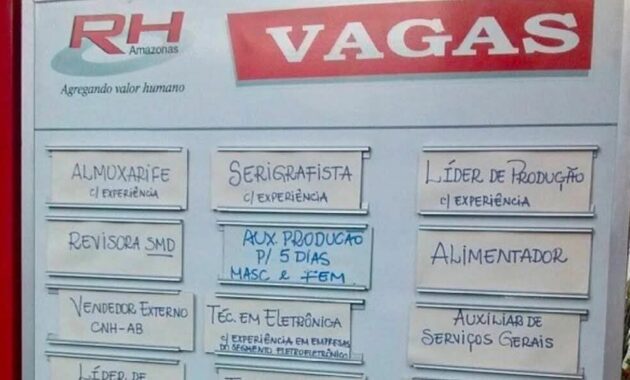 RH
Amazonas
Agregando valor humano
VAGAS
ALMOXARIFE
C/ EXPERIÊNCIA
SERIGRAFISTA
C/ EXPERIÊNCIA
LÍDER DE PRODUÇÃO
C/ EXPERIÊNCIA
REVISORA SMD
AUX. PRODUCAO
P/ 5 DIAS
MASC e FEM
ALIMENTADOR
VENDEDOR EXTERNO
CNH-AB
TÉC. EM ELETRÔNICA
C/ EXPERIÊNCIA EM EMPRESAS
DO SEGMENTO ELETROELETRÔNICO
AUXILIAR DE
SERVIÇOS GERAIS
LÍDER DE